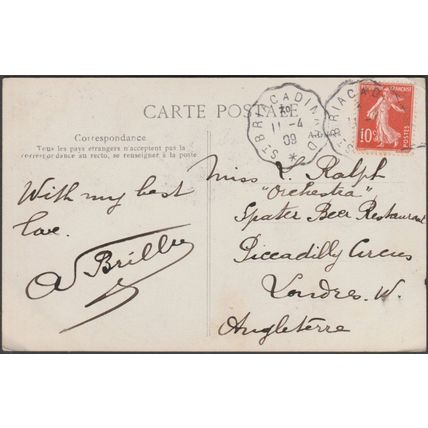 CARTE POSTALE
Correspondance
Tous les pays étrangers n'acceptent pas la
correspondance au recto, se renseigner à la poste
ST BRIAC A DINARD
11-4
09
FRANÇAISE
10c
POSTES
With my best
love.
A Brillu
Miss L. Ralph
"Orchestra"
Spater Beer Restaurant
Piccadilly Circus
Londres. W.
Angleterre